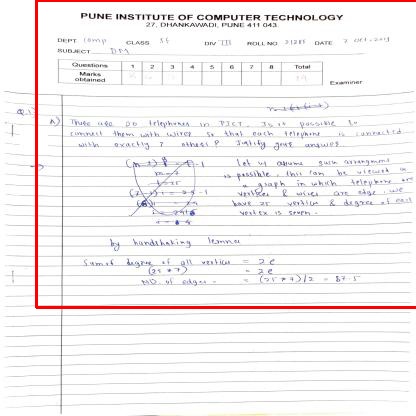 PUNE INSTITUTE OF COMPUTER TECHNOLOGY
27, DHANKAWADI, PUNE 411 043.
DEPT. Comp CLASS SE DIV III ROLL NO. DATE 7 Oct
SUBJECT DM
Questions 1 2 3 4 5 6 7 8 Total
Marks obtained
Examiner
Q.1)
A) There are telephones in PICT. Is it possible to
connect them with wires so that each telephone is connected
with exactly 7 others? Justify your answer
Let us assume such arrangment
is possible, this can be viewed in
a graph in which telephone are
vertices & wires are edge, we
have 25 vertices & degree of each
vertex is seven.
by handshaking lemma
Sum of degree of all vertices = 2e
(25 * 7) = 2e
NO. of edges = (25 * 7)/2 = 87.5